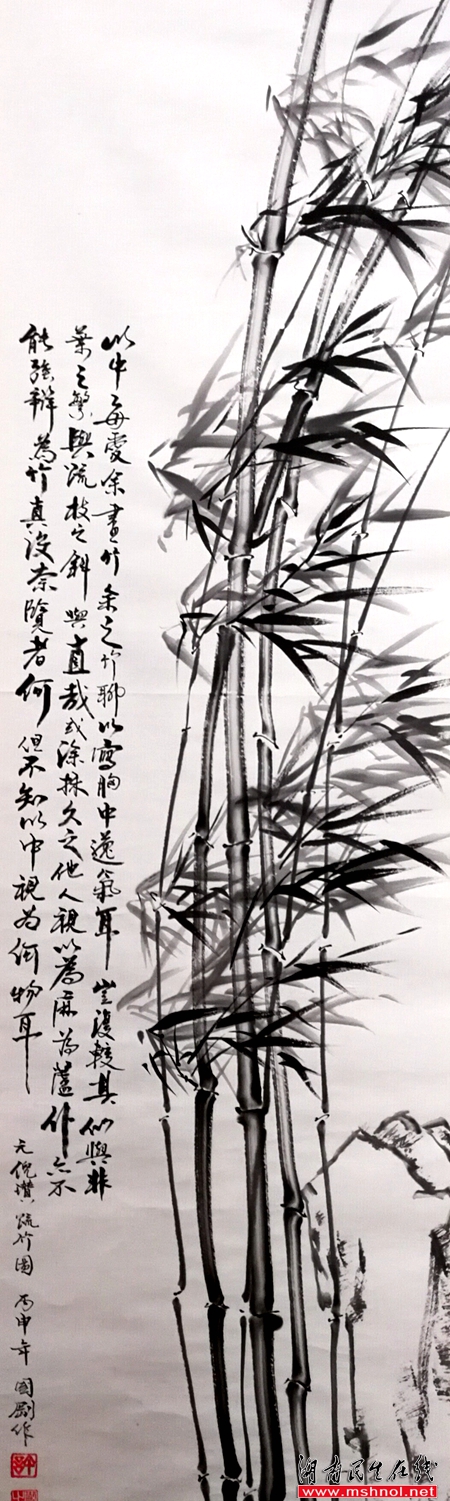 以中每愛余畫竹余之竹聊以寫胸中逸氣耳豈復較其似與非
葉之繁與疏枝之斜與直哉或涂抹久之他人視以為麻為蘆仆亦不
能強辯為竹真沒奈覽者何但不知以中視為何物耳
元倪瓚疏竹圖 丙申年 國剛作
湖南民生在线
www.mshnol.net